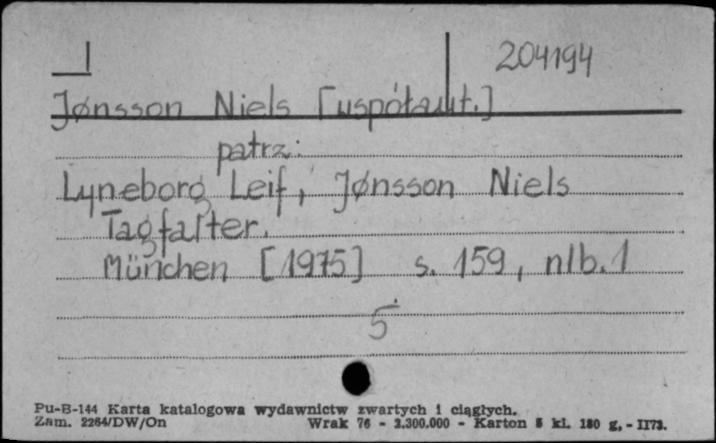 204194
Jønsson Niels [współaut.]
patrz:
Lyneborg Leif, Jønsson Niels
Tagfalter.
München [1975] s. 159, nlb. 1
5
Pu-B-144 Karta katalogowa wydawnictw zwartych i ciągłych.
Zam. 2264/DW/On Wrak 76 - 2.300.000 - Karton 5 kl. 180 g. - II73.